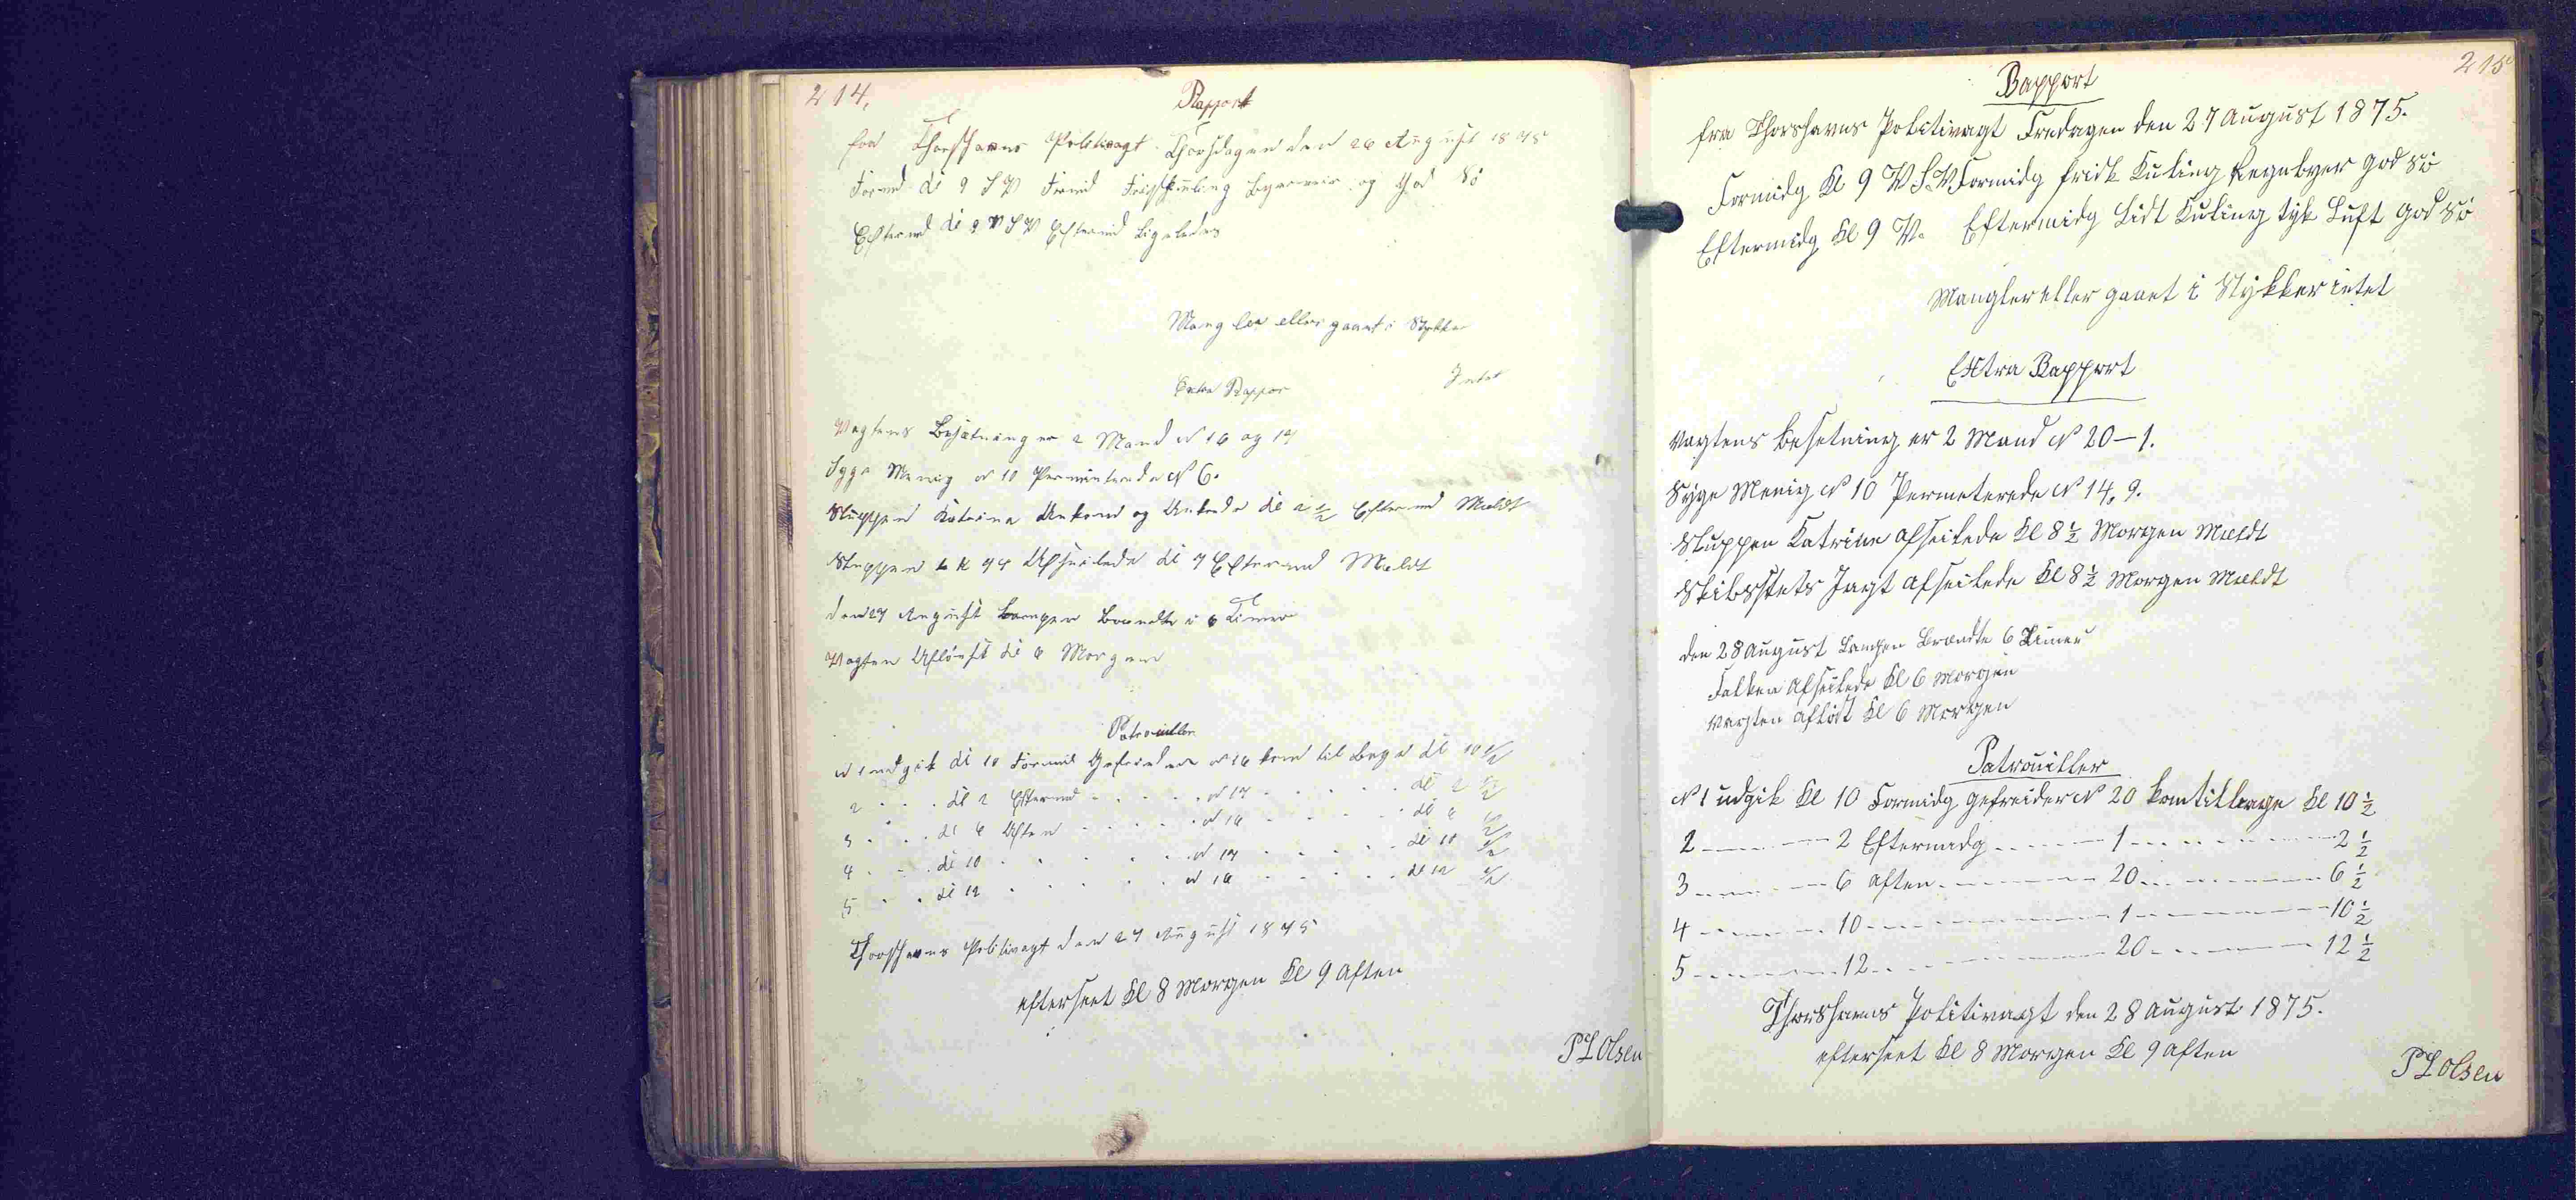 214.
Rapport
fra Thorshavns Politivagt Thorsdagen den 26 August 1875
Formd Kl 9 S V Formd Friskkuling Byeveir og God Sö
Eftermd Kl 9 V S V Eftermd Ligeledes
Mangler eller gaaet i Stykker
Intet
Extra Rappor
Vagtens Besætning er 2 Mand No 16 og 17
Syge Menig No 10 Permiterede No 6.
Sluppen Katrina Ankom og Ankrede Kl 2 1/2 Eftermd Meldt
Sluppen Afseilede Kl 7 Eftermd Meldt
den 27 August Lampen Brændte i 6 Timer
Vagten Aflöst Kl 6 Morgen
Patrouiller
No 1 udgik Kl 10 Formd Gefreider No 16 kom til bage Kl 10 1/2
2 - - - Kl 2 Eftermd - - - - - No 17 - - - - - - Kl 2 1/2
3 - - - Kl 6 Aften - - - - - No 16 - - - - - - Kl 6 1/2
4 - - - Kl 10 - - - - - No 17 - - - - - - Kl 10 1/2
5 - - - Kl 12 - - - - - No 16 - - - - - - Kl 12 1/2
Thorshavns Politivagt den 27 August 1875
efterseet Kl 8 Morgen Kl 9 Aften
P L Olsen
215
Rapport
fra Thorshavns Politivagt Fredagen den 27 August 1875.
Formidg Kl 9 V S. V Formidg frisk Kuling Regnbyer god Sö
Eftermidg Kl 9 V. Eftermidg Lidt Kuling tyk Luft god Sö
Mangler eller gaaet i Stykker intet
Extra Rapport
Vagtens Besetning er 2 Mand No 20-1.
Syge Menig No 10 Permeterede No 14, 9.
Sluppen Katrine afseilede Kl 8 1/2 Morgen Mældt
Skibsstets Jagt afseilede Kl 8 1/2 Morgen Mældt
den 28 August Lampen Brændte 6 Timer
Falken Afseilede Kl 6 Morgen
Vagten aflöst Kl 6 Morgen
Patrouiller
No 1 udgik Kl 10 Formidg gefreider No 20 kom tilbage Kl 10 1/2
2 - - - - 2 Eftermidg - - - - - 1 - - - - - - 2 1/2
3 - - - - 6 Aften - - - - - 20 - - - - - - 6 1/2
4 - - - - 10 - - - - - 1 - - - - - - 10 1/2
5 - - - - 12 - - - - - 20 - - - - - - 12 1/2
Thorshavns Politivagt den 28 August 1875.
efterseet Kl 8 Morgen Kl 9 Aften
P L Olsen